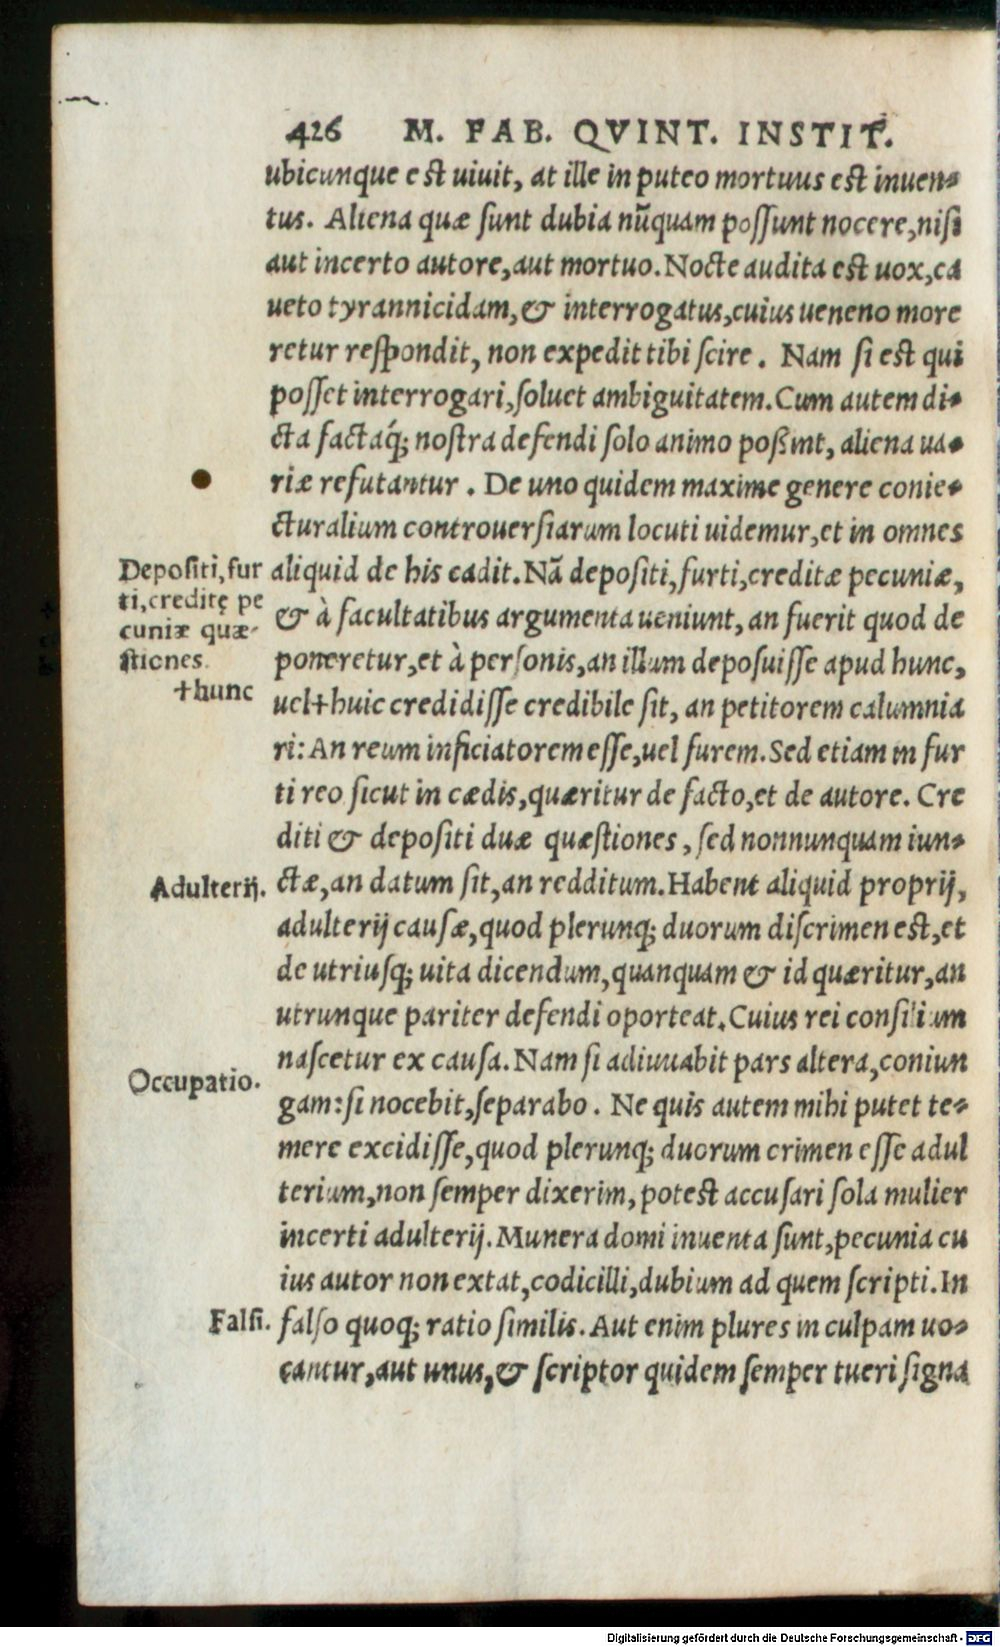 426 M. FAB. QVINT. INSTIT.
ubicunque est uiuit, at ille in puteo mortuus est inuen-
tus. Aliena quæ sunt dubia nũquam possunt nocere, nisi
aut incerto autore, aut mortuo. Nocte audita est uox, ca
ueto tyrannicidam, & interrogatus, cuius ueneno more
retur respondit, non expedit tibi scire. Nam si est qui
posset interrogari, soluet ambiguitatem. Cum autem di-
cta factaq́; nostra defendi solo animo poßint, aliena ua-
riæ refutantur. De uno quidem maxime genere conie-
cturalium controuersiarum locuti uidemur, et in omnes
Depositi, fur
ti, creditę pe
cuniæ quæ-
stiones.
†hunc
aliquid de his cadit. Nã depositi, furti, creditæ pecuniæ,
& à facultatibus argumenta ueniunt, an fuerit quod de
poneretur, et à personis, an illum deposuisse apud hunc,
uel †huic credidisse credibile sit, an petitorem calumnia
ri: An reum inficiatorem esse, uel furem. Sed etiam in fur
ti reo sicut in cædis, quæritur de facto, et de autore. Cre
diti & depositi duæ quæstiones, sed nonnunquam iun-
Adulterij.
ctæ, an datum sit, an redditum. Habent aliquid proprij,
adulterij causæ, quod plerunq; duorum discrimen est, et
de utriusq; uita dicendum, quanquam & id quæritur, an
utrunque pariter defendi oporteat. Cuius rei consilium
nascetur ex causa. Nam si adiuuabit pars altera, coniun
Occupatio.
gam: si nocebit, separabo. Ne quis autem mihi putet te-
mere excidisse, quod plerunq; duorum crimen esse adul
terium, non semper dixerim, potest accusari sola mulier
incerti adulterij. Munera domi inuenta sunt, pecunia cu
ius autor non extat, codicilli, dubium ad quem scripti. In
Falsi.
falso quoq; ratio similis. Aut enim plures in culpam uo-
cantur, aut unus, & scriptor quidem semper tueri signa
Digitalisierung gefördert durch die Deutsche Forschungsgemeinschaft - DFG